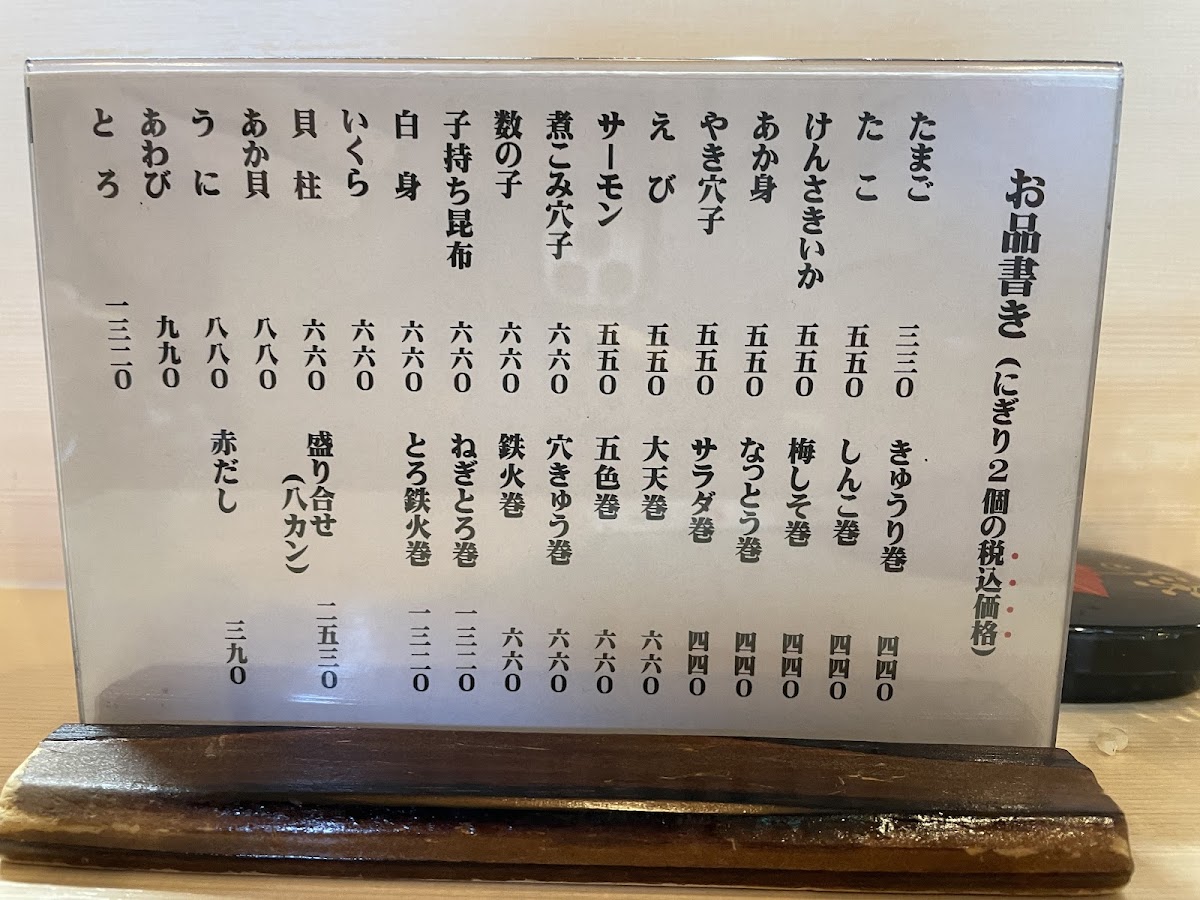 お品書き（にぎり2個の税込価格）
たまご 三三〇
たこ 五五〇
けんさきいか 五五〇
あか身 五五〇
やき穴子 五五〇
えび 五五〇
サーモン 五五〇
煮こみ穴子 六六〇
数の子 六六〇
子持ち昆布 六六〇
白身 六六〇
いくら 六六〇
貝柱 六六〇
あか貝 八八〇
うに 八八〇
あわび 九九〇
とろ 一三二〇
きゅうり巻 四四〇
しんこ巻 四四〇
梅しそ巻 四四〇
なっとう巻 四四〇
サラダ巻 四四〇
大天巻 六六〇
五色巻 六六〇
穴きゅう巻 六六〇
鉄火巻 六六〇
ねぎとろ巻 一三二〇
とろ鉄火巻 一三二〇
盛り合せ 二五三〇
（八カン）
赤だし 三九〇